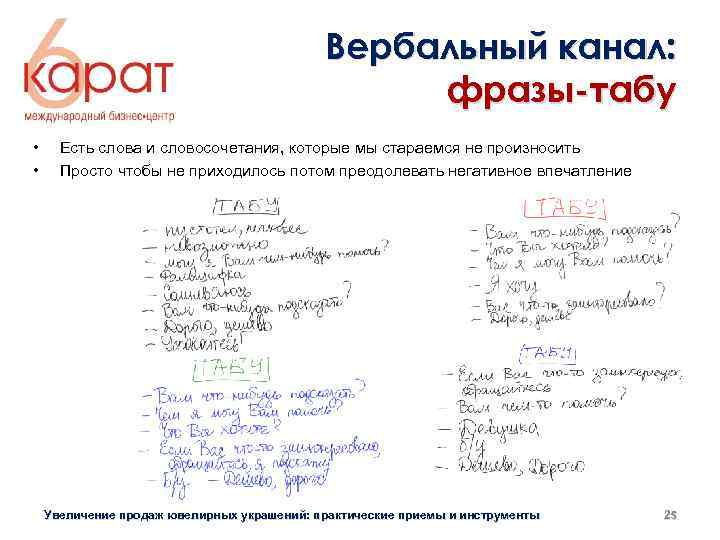 6 карат
международный бизнес-центр
Вербальный канал:
фразы-табу
• Есть слова и словосочетания, которые мы стараемся не произносить
• Просто чтобы не приходилось потом преодолевать негативное впечатление
ТАБУ
- пустотел,
- невозможно
- могу я Вам чем-нибудь помочь?
- Фальшифка
- Сомневаюсь
- Вам что-нибудь подсказать?
- Дорого, дёшево
ТАБУ
- Вам что-нибудь подсказать?
- Что Вы хотели?
- Чем я могу Вам помочь?
- Я хочу
- Вас что-то заинтересовало?
- Дорого, дёшево
ТАБУ
- Вам что нибудь подсказать?
- Чем я могу Вам помочь?
- Что Вы хотите?
- Если Вас что-то заинтересовало,
обращайтесь, я подскажу
- Б/у - Дешево, дорого
ТАБУ
- Если Вас что-то заинтересует,
обращайтесь
- Вам чем-то помочь?
- Девушка
- б/у
- Дёшево, Дорого
Увеличение продаж ювелирных украшений: практические приемы и инструменты
25